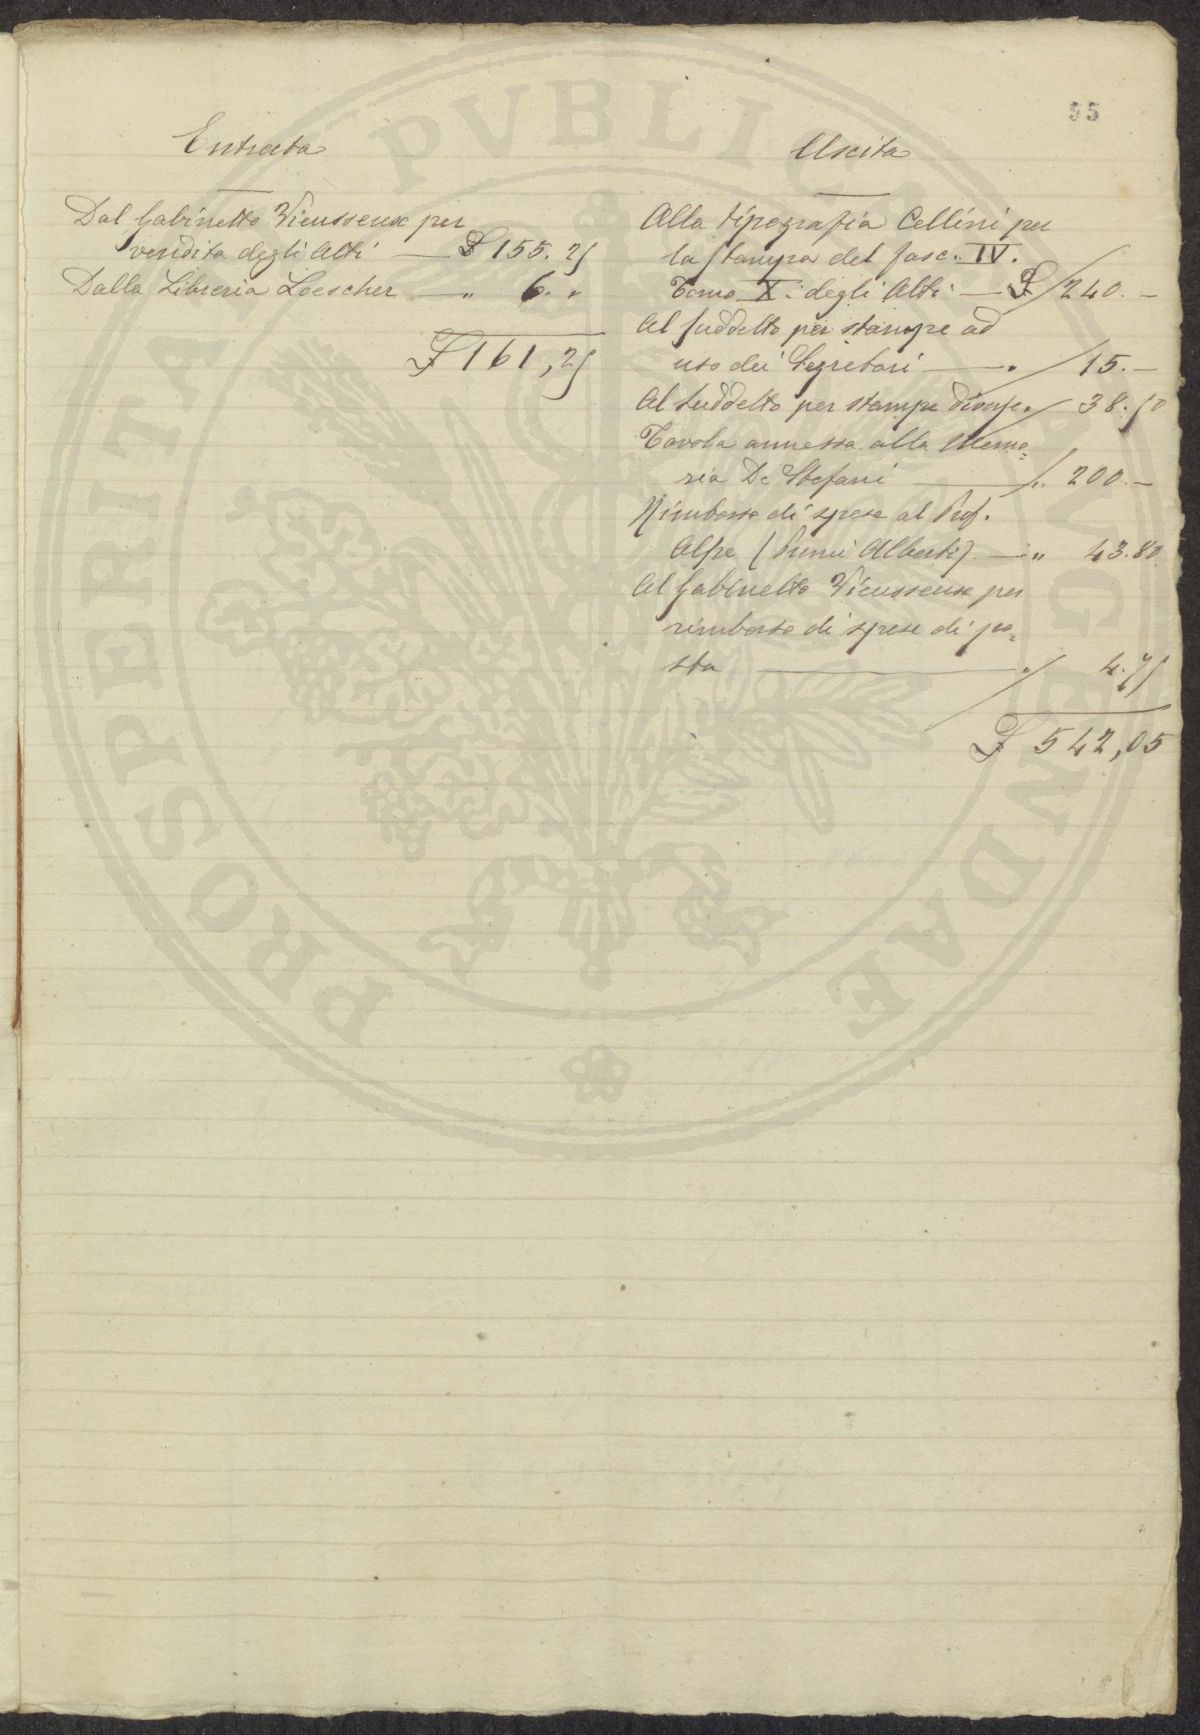 55
Entrata
Dal Gabinetto Vieusseux per
vendita degli Atti — £ 155.25
Dalla Libreria Loescher — " 6. "
£ 161,25
Uscita
Alla tipografia Cellini per
la stampa del fasc. IV.
Tomo X: degli Atti — £ 240.—
Al suddetto per stampe ad
uso dei Segretari — " 15.—
Al suddetto per stampe diverse " 38.50
Tavola annessa alla Memo=
ria De Stefani — " 200.—
Rimborso di spese al Prof.
Alpe (Premi Alberti) — " 43.80
Al Gabinetto Vieusseux per
rimborso di spese di po=
sta — " 4.75
£ 542,05
PROSPERITATI PVBLICAE AVGENDAE